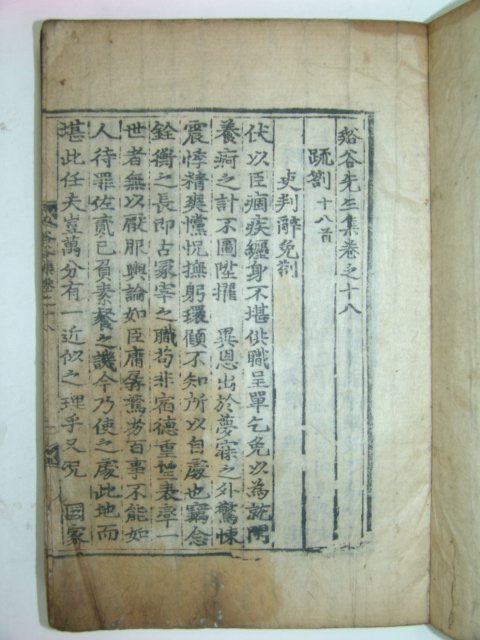 谿谷先生集卷之十八
疏劄 十八首
吏判辭免劄
伏以臣痼疾纏身不堪供職呈單乞免以爲就閑
養痾之計不圖陞擢 異恩出於夢寐之外驚悚
震悸精爽懭怳撫躬環顧不知所以自處也竊念
銓衡之長卽古冢宰之職苟非宿德重望表率一
世者無以厭服輿論如臣庸孱駑劣百事不能如
人待罪佐貳已負素餐之譏今乃使之處此地而
堪此任夫豈萬分有一近似之理乎又況 國家